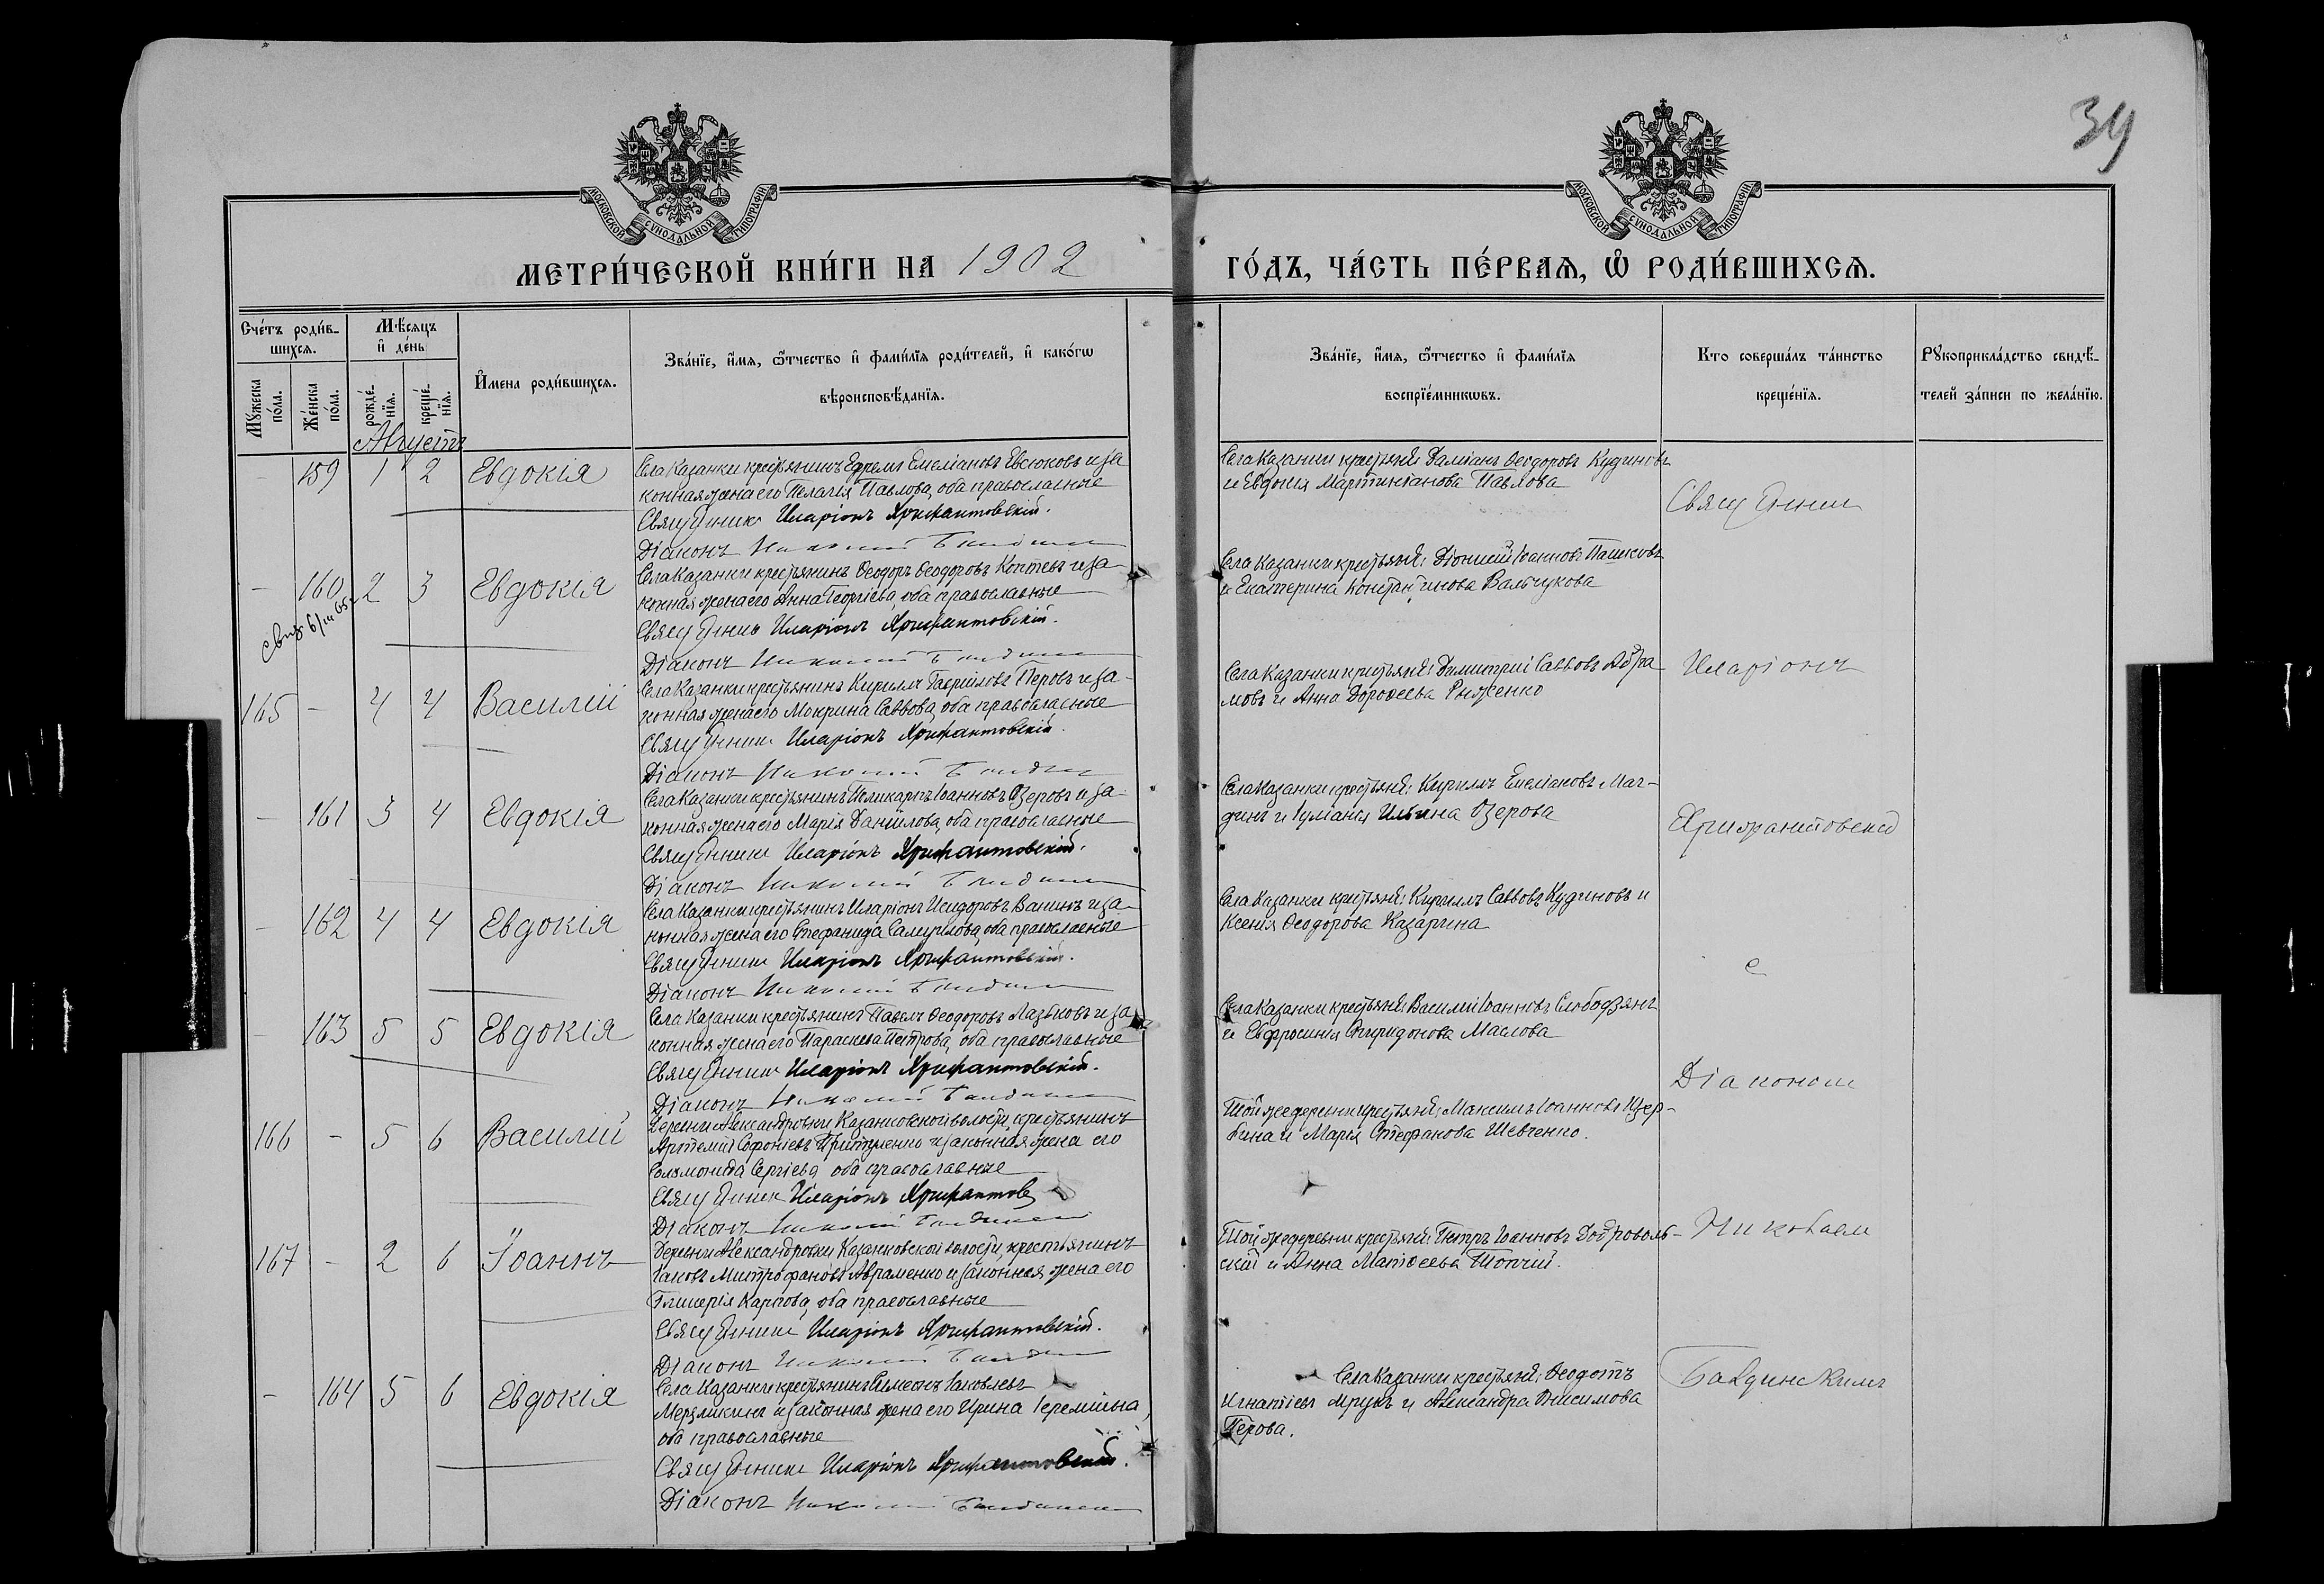 39
МОСКОВСКОЙ СѴНОДАЛЬНОЙ ТИПОГРАФІИ
МОСКОВСКОЙ СѴНОДАЛЬНОЙ ТИПОГРАФІИ
МЕТРИ́ЧЕСКОЙ КНИ́ГИ НА 1902
ГО́ДЪ, ЧА́СТЬ ПЕ́РВАЯ, Ѡ҆ РОДИ́ВШИХСЯ.
Сче́тъ роди́в-
шихся.
Мꙋ́жеска по́ла.
Же́нска по́ла.
Мѣ́сяцъ
и҆ де́нь
рожде́-
нїя.
креще́-
нїя.
И҆мена роди́вшихся.
Зва́нїе, и҆́мя, ѻ҆́тчество и҆ фами́лїя роди́телей, и҆ како́гѡ
вѣроисповѣ́данїя.
Зва́нїе, и҆́мя, ѻ҆́тчество и҆ фами́лїя
воспрїе́мникѡвъ.
Кто соверша́лъ та́инство
креще́нїя.
Рꙋкоприкла́дство свидѣ́-
телей за́писи по жела́нїю.
Августъ
- 159 1 2 Евдокія
Села Казанки крестьянинъ Ефремъ Емеліановъ Евсюковъ и за-
конная жена его Пелагія Павлова, оба православные
Священникъ Иларіонъ Хрисантовскій.
Діаконъ Николай
Села Казанки крестьяне: Даміанъ Ѳеодоровъ Кудиновъ
и Евдокія Мартиніанова Павлова
- 160 2 3 Евдокія
Села Казанки крестьянинъ Ѳеодоръ Ѳеодоровъ Коптевъ и за-
конная жена его Анна Георгіева, оба православные
Священникъ Иларіонъ Хрисантовскій.
Діаконъ Николай
Села Казанки крестьяне: Діонисій Іоанновъ Пашковъ
и Екатерина Константинова Вальчукова
165 - 4 4 Василій
Села Казанки крестьянинъ Кириллъ Гавріиловъ Перовъ и за-
конная жена его Мокрина Саввова, оба православные
Священникъ Иларіонъ Хрисантовскій.
Діаконъ Николай
Села Казанки крестьяне: Димитрій Саввовъ Абра-
мовъ и Анна Дороѳеева Рыженко
- 161 3 4 Евдокія
Села Казанки крестьянинъ Поликарпъ Іоанновъ Озеровъ и за-
конная жена его Марія Даніилова, оба православные
Священникъ Иларіонъ Хрисантовскій.
Діаконъ Николай
Села Казанки крестьяне: Кириллъ Емеліановъ
и Іуліанія Ильина Озерова
- 162 4 4 Евдокія
Села Казанки крестьянинъ Иларіонъ Исидоровъ Ванинъ и за-
конная жена его Стефанида Самуилова, оба православные
Священникъ Иларіонъ Хрисантовскій.
Діаконъ Николай
Села Казанки крестьяне: Кириллъ Саввовъ Кудиновъ и
Ксенія Ѳеодорова Казарина
- 163 5 5 Евдокія
Села Казанки крестьянинъ Павелъ Ѳеодоровъ Лазьковъ и за-
конная жена его Параскева Петрова, оба православные
Священникъ Иларіонъ Хрисантовскій.
Діаконъ Николай
Села Казанки крестьяне: Василій Іоанновъ Слободзянъ
и Евфросинія Спиридонова Маслова
166 - 5 6 Василій
Деревни Александровки Казанковской волости, крестьянинъ
Артемій Софоніевъ и законная жена его
Соломонида Сергіева оба православные
Священникъ Иларіонъ Хрисантов
Діаконъ Николай
Той же деревни крестьяне: Максимъ Іоанновъ Щер-
бина и Марія Стефанова Шевченко.
167 - 2 6 Іоаннъ
Деревни Александровки Казанковской волости, крестьянинъ
Іаковъ Митрофановъ Авраменко и законная жена его
Гликерія Карпова, оба православные
Священникъ Иларіонъ Хрисантовскій.
Діаконъ Николай
Той же деревни крестьяне: Петръ Іоанновъ Доброволь-
скій и Анна Матѳеева Топчій.
- 164 5 6 Евдокія
Села Казанки крестьянинъ Симеонъ Іаковлевъ
Мерзликинъ и законная жена его Ирина Іереміина,
оба православные
Священникъ Иларіонъ Хрисантовскій.
Діаконъ Николай
Села Казанки крестьяне: Ѳеодотъ
Игнатіевъ и Александра Онисимова
Перова.
Священникъ
Иларіонъ
Хрисантовскій
с
Діакономъ
Николаемъ